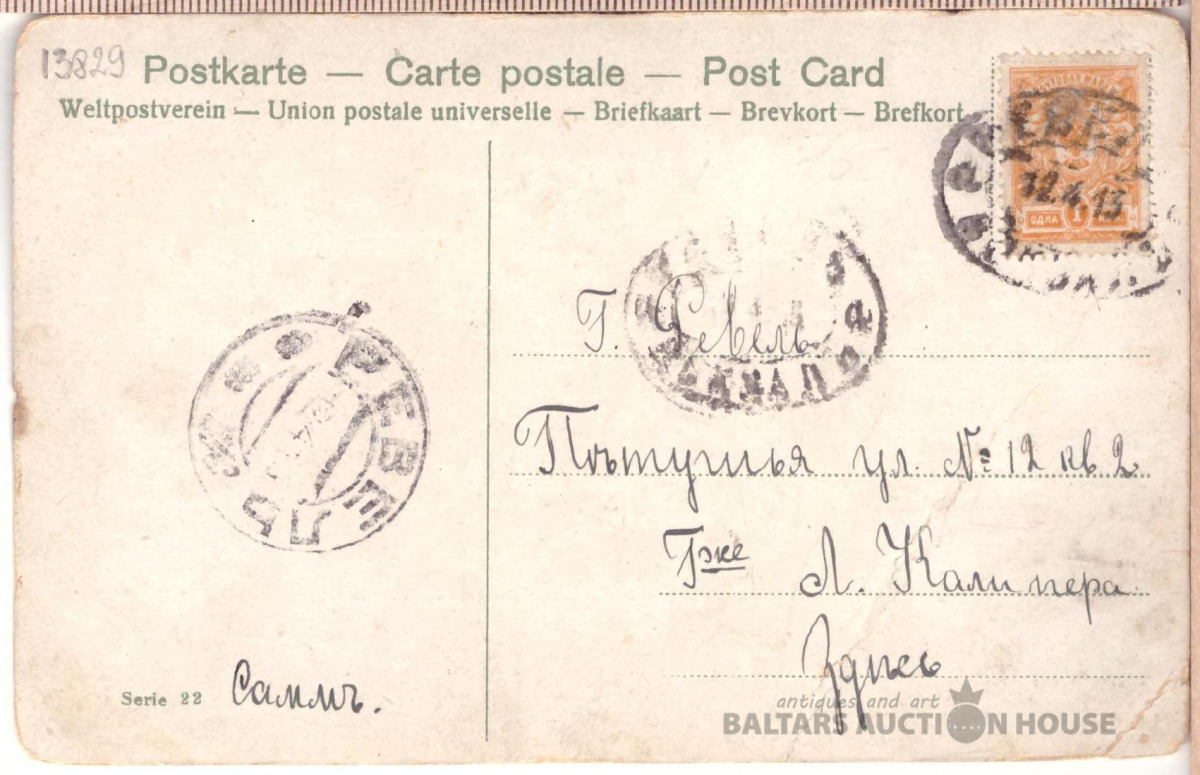 13829
Postkarte — Carte postale — Post Card
Weltpostverein — Union postale universelle — Briefkaart — Brevkort — Brefkort
12.4.13
ОДНА 1
Г. Ревель
РЕВЕЛЬ
Пѣтушья ул. № 12 кв 2
Гже Л. Калипера
Здѣсь
Serie 22 Саммъ.
antiques and art
BALTARS AUCTION HOUSE